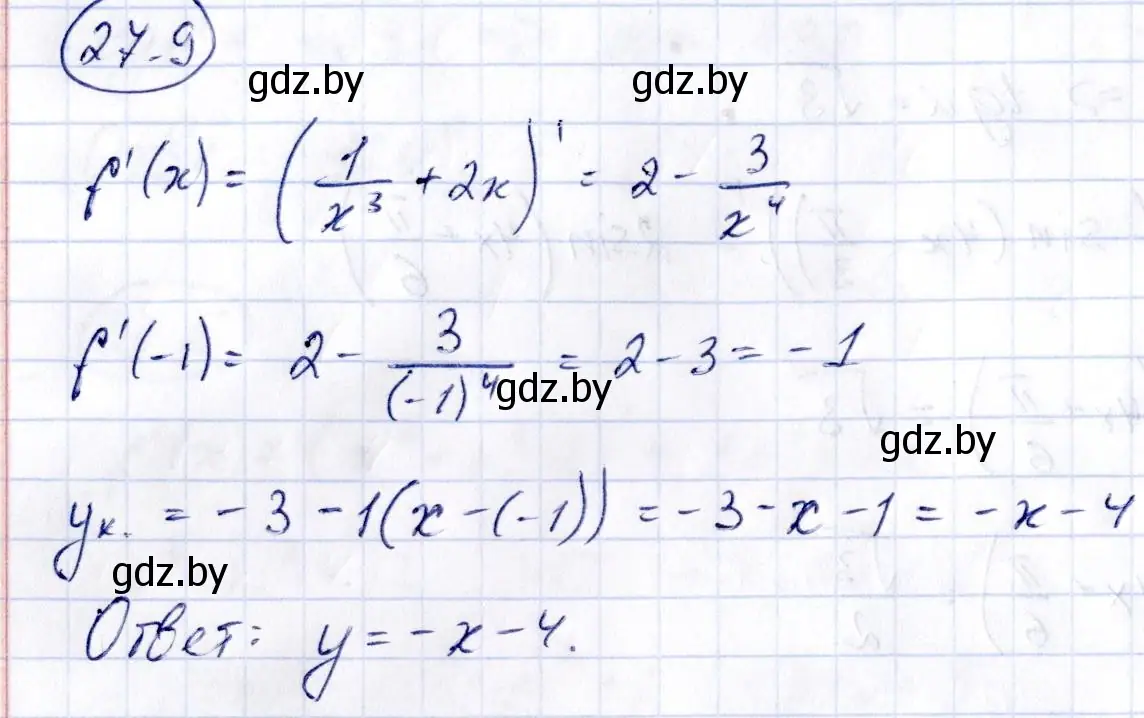 27.9
gdz.by gdz.by
f'(x) = (1/x³ + 2x)' = 2 - 3/x⁴
f'(-1) = 2 - 3/(-1)⁴ = 2 - 3 = -1
gdz.by
gdz.by
yк. = -3 - 1(x - (-1)) = -3 - x - 1 = -x - 4
gdz.by
Ответ: y = -x - 4.